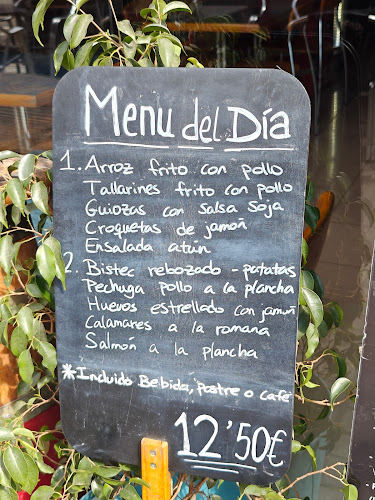 Menu del Día
1. Arroz frito con pollo
Tallarines frito con pollo
Guiozas con salsa soja
Croquetas de jamón
Ensalada atún
2. Bistec rebozado - patatas
Pechuga pollo a la plancha
Huevos estrellado con jamón
Calamares a la romana
Salmón a la plancha
*Incluido Bebida, postre o café
12'50€